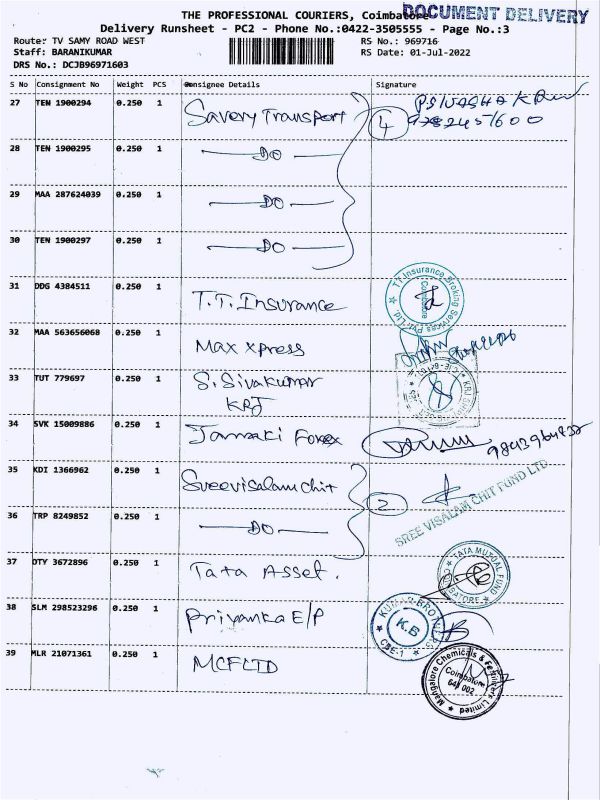 THE PROFESSIONAL COURIERS, Coimbatore
DOCUMENT DELIVERY
Delivery Runsheet - PC2 - Phone No.:0422-3505555 - Page No.:3
Route: TV SAMY ROAD WEST RS No.: 969716
Staff: BARANIKUMAR RS Date: 01-Jul-2022
DRS No.: DCJB96971603
S No Consignment No Weight PCS Consignee Details Signature
27 TEN 1900294 0.250 1 Savery Transport 4
28 TEN 1900295 0.250 1 —DO—
29 MAA 287624039 0.250 1 —DO—
30 TEN 1900297 0.250 1 —DO—
31 DDG 4384511 0.250 1 T.T. Insurance
TT Insurance Broking Services Pvt. Ltd. Coimbatore
32 MAA 563656068 0.250 1 Max xpress
33 TUT 779697 0.250 1 S. Sivakumar
KRJ
34 SVK 15009886 0.250 1 Janaki Forex
35 KDI 1366962 0.250 1 Sreevisalam chit 2
SREE VISALAM CHIT FUND LTD
36 TRP 8249852 0.250 1 —DO—
37 DTY 3672896 0.250 1 Tata Asset.
TATA MUTUAL FUND
38 SLM 298523296 0.250 1 Priyanka E/P
KUMAR BROTHERS K.B CBE-1
39 MLR 21071361 0.250 1 MCFLTD
Mangalore Chemicals & Fertilizers Limited Coimbatore 641 002